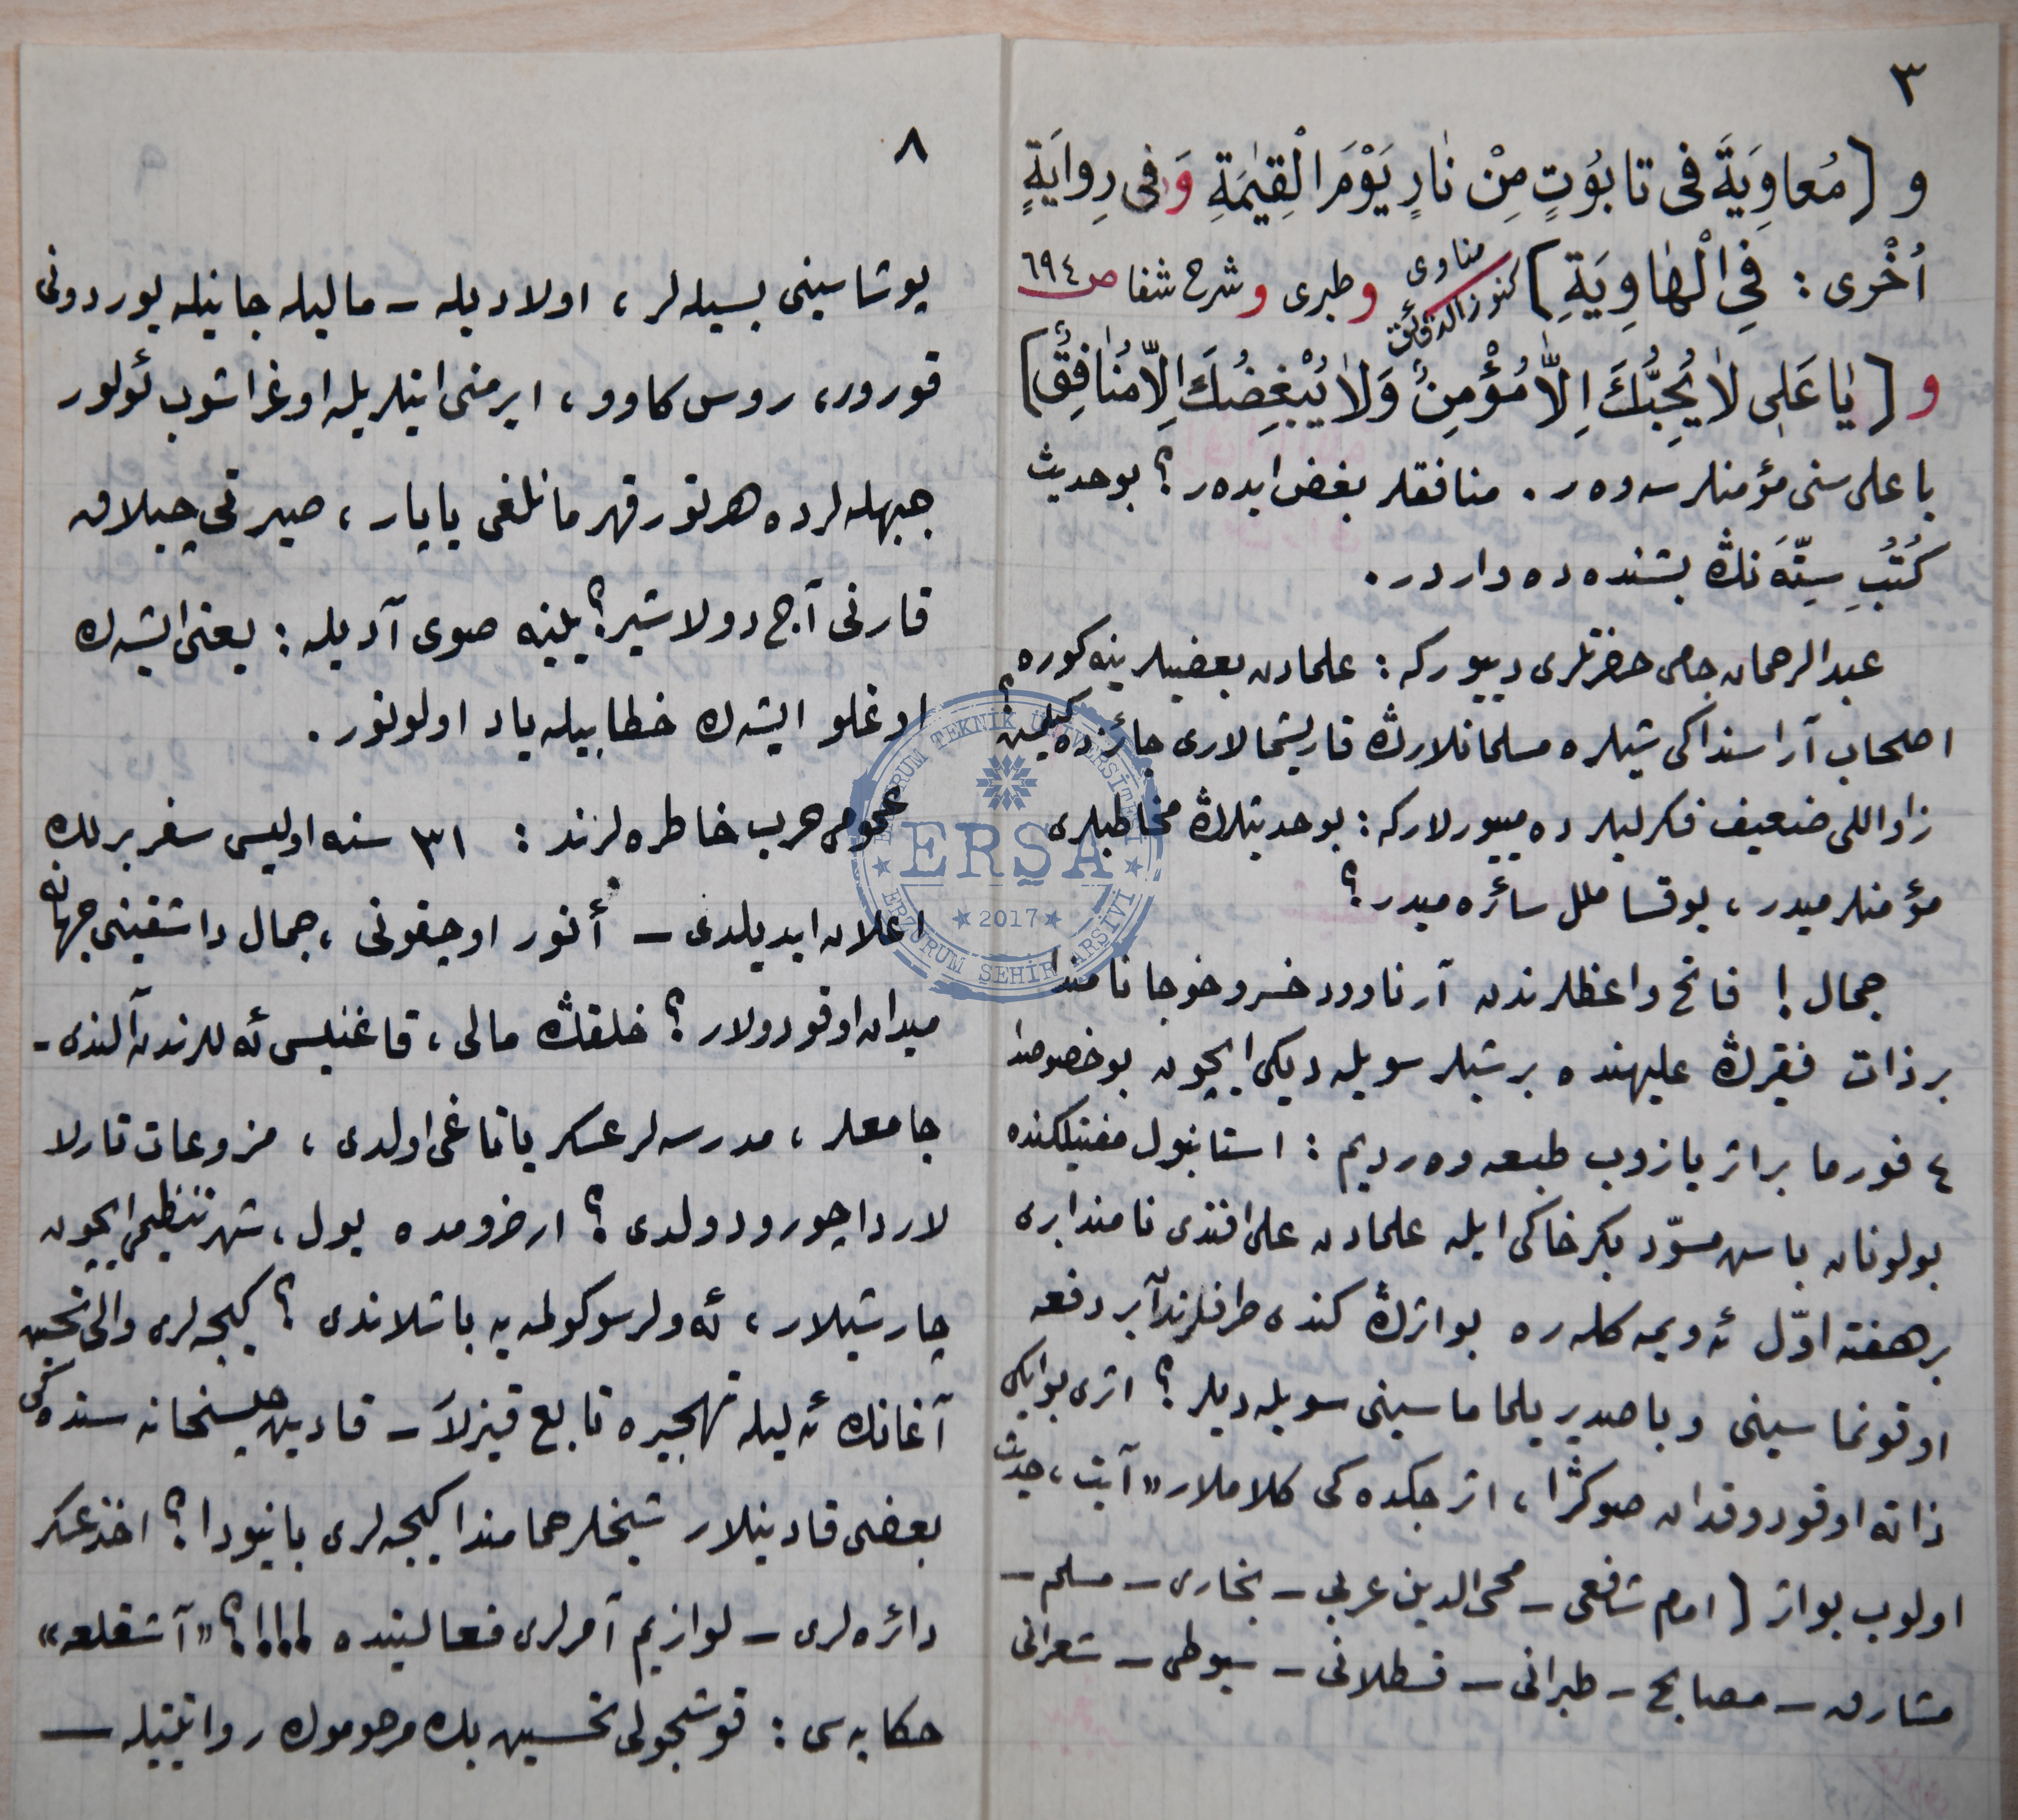 ٣
و [مُعاوِيَةَ فى تابُوُتٍ مِنْ نٰارٍ يَوْمَ الْقِيٰمَةِ وَ فى رِوايَةٍ
اُخْرى : فِى الْهٰاوِيَةِ] كنوز الدقائق مناوى و طبرى و شرح شفا ص ٦٩٤
و [يٰا عَلى لاٰ يُحِبُّكَ اِلاّٰ مُؤْمِنٌ وَلاٰ يُبْغِضُكَ اِلاّ مُنٰافِقٌ]
يا على سنى مؤمنلر سه وه ر . منافقلر بغض ايده ر ؟ بو حديث
كُتُبِ سِتَّهَ نڭ بشنده ده واردر .
عبد الرحمان جامى حضرتلرى دييور كه : علمادن بعضيلرينه كوره
اصحاب آراسنداكى شيلره مسلمانلارڭ قاريشمالارى جائز ده كيلمش ؟
زاواللى ضعيف فكرليلر ده مييورلار كه : بو حديثلرڭ مخاطبلرى
مؤمنلر ميدر ، يوقسا ملل سائره ميدر ؟
جمال ! فاتح واعظلرندن آرناوود خسرو خوجا نامندا
بر ذات فقيرڭ عليهنده بر شيلر سويله ديكى ايچون بو خصوصدا
٤ فورما بر اثر يازوب طبعه وه رديم : استانبول مفتيلكنده
بولونان باش مسوّد بكر خاكى ايله علمادن على افندى نامندا برى
بر هفته اوّل ئه ويمه كله ره بو اثرڭ كندى طرفلرندان بر دفعه
اوقونماسينى و باصديريلماماسينى سويله ديلر ؟ اثرى بو ايكى
ذاته اوقودوقدان صوكڭرا ، اثرجكده كى كلاملار «آيت ، حديث
اولوب بو اثر [امام شافعى – محى الدين عربي – بخارى – مسلم –
مشارق – مصابح – طبرانى – قسطلانى – سيوطى – شعرانى
٨
يوشاسينى بسيله لر ، اولاديله – ماليله جانيله يوردونى
قورور ، روس كاوو ، ايرمنى ايتلريله اوغراشوب ئولور
جبهه لرده هر تور قهرمانلغى ياپار ، صيرتى چيبلاق
قارنى آج دولاشير ؟ يلنيه صوى آديله : يعنى ايشه ك
اوغلو ايشه ك خطابيله ياد اولونور .
عمومى حرب خاطره لرند : ٣١ سنه اوليسى سفربرلك
اعلان ايديلدى – أنور اوجقونى ، جمال داشقينى جهانه
ميدان اوقودولار ؟ خلقڭ مالى ، قاغنيسى ئه للرندن آلندى -
جامعلر ، مدرسه لر عسكر ياتاغى اولدى ، مزروعات تارلا
لاردا چورودولدى ؟ ارضرومده يول ، شهر تنظيمى ايچون
چارشيلار ، ئه ولر سوكولمه يه باشلاندى ؟ كيجه لرى والى تحسين
آغانك ئه ليله تهجيره تابع قيزلا – قادين حبسخانه سنده كى
بعضى قادينلار شيخلر حمامندا كيجه لرى يانيودا ؟ اخذ عسكر
دائره لرى – لوازيم آمرلرى فعاليتده !!!!؟ «آشقلعه»
حكايه سى : قوشجولى تحسين بك مرحومك روايتيله –
ERZURUM TEKNİK ÜNİVERSİTESİ
ERŞA
2017
ERZURUM ŞEHİR ARŞİVİ